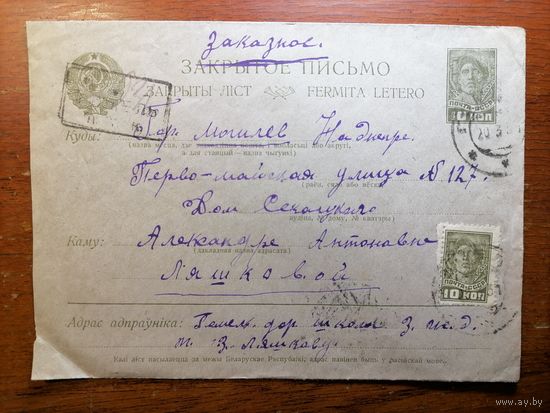 Заказное.
ЗАКРЫТОЕ ПИСЬМО
ЗАКРЫТЫ ЛІСТ FERMITA LETERO
ПОЧТА СССР
10 КОП
Куды: Гор. Могилев Наднепре.
(назва месца, дзе знаходзіцца пошта, і вобласьці або акругі,
а для станцый — назва чыгункі)
Перво-майская улица № 127.
(раён, сяло або вёска)
Дом Секацкаго
вуліца, № дому, № кватэры)
Каму: Александре Антоновне
(дакладная назва адрасата)
Ляшковой
ПОЧТА СССР
10 КОП
Адрас адпраўніка: Гомель. дор школа
З. Ляшкову
Калі ліст пасылаецца за межы Беларускае Рэспублікі, адрас павінен быць у расійскай мове.
www.ay.by